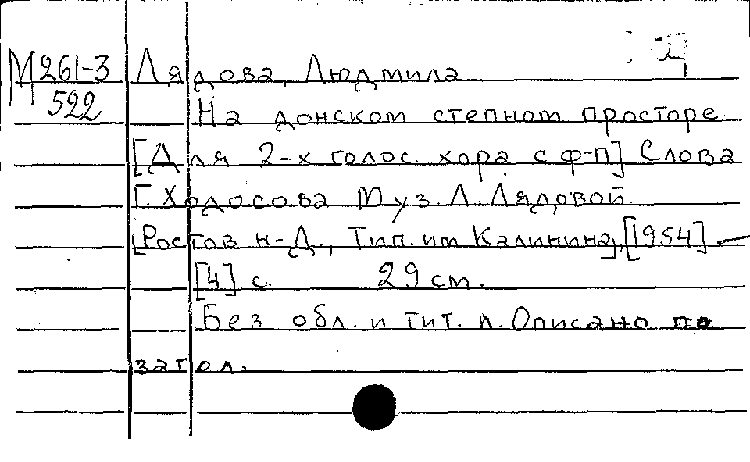 М 261-3 Лядова, Людмила
522
На донском степном просторе
[Для 2-х голос. хора с ф-п] Слова
Г. Ходосова Муз. Л. Лядовой
[Ростов н-Д., Тип. им Калинина], [1954]. –
[4] с. 29 см.
Без обл. и тит. л. Описано по
загол.